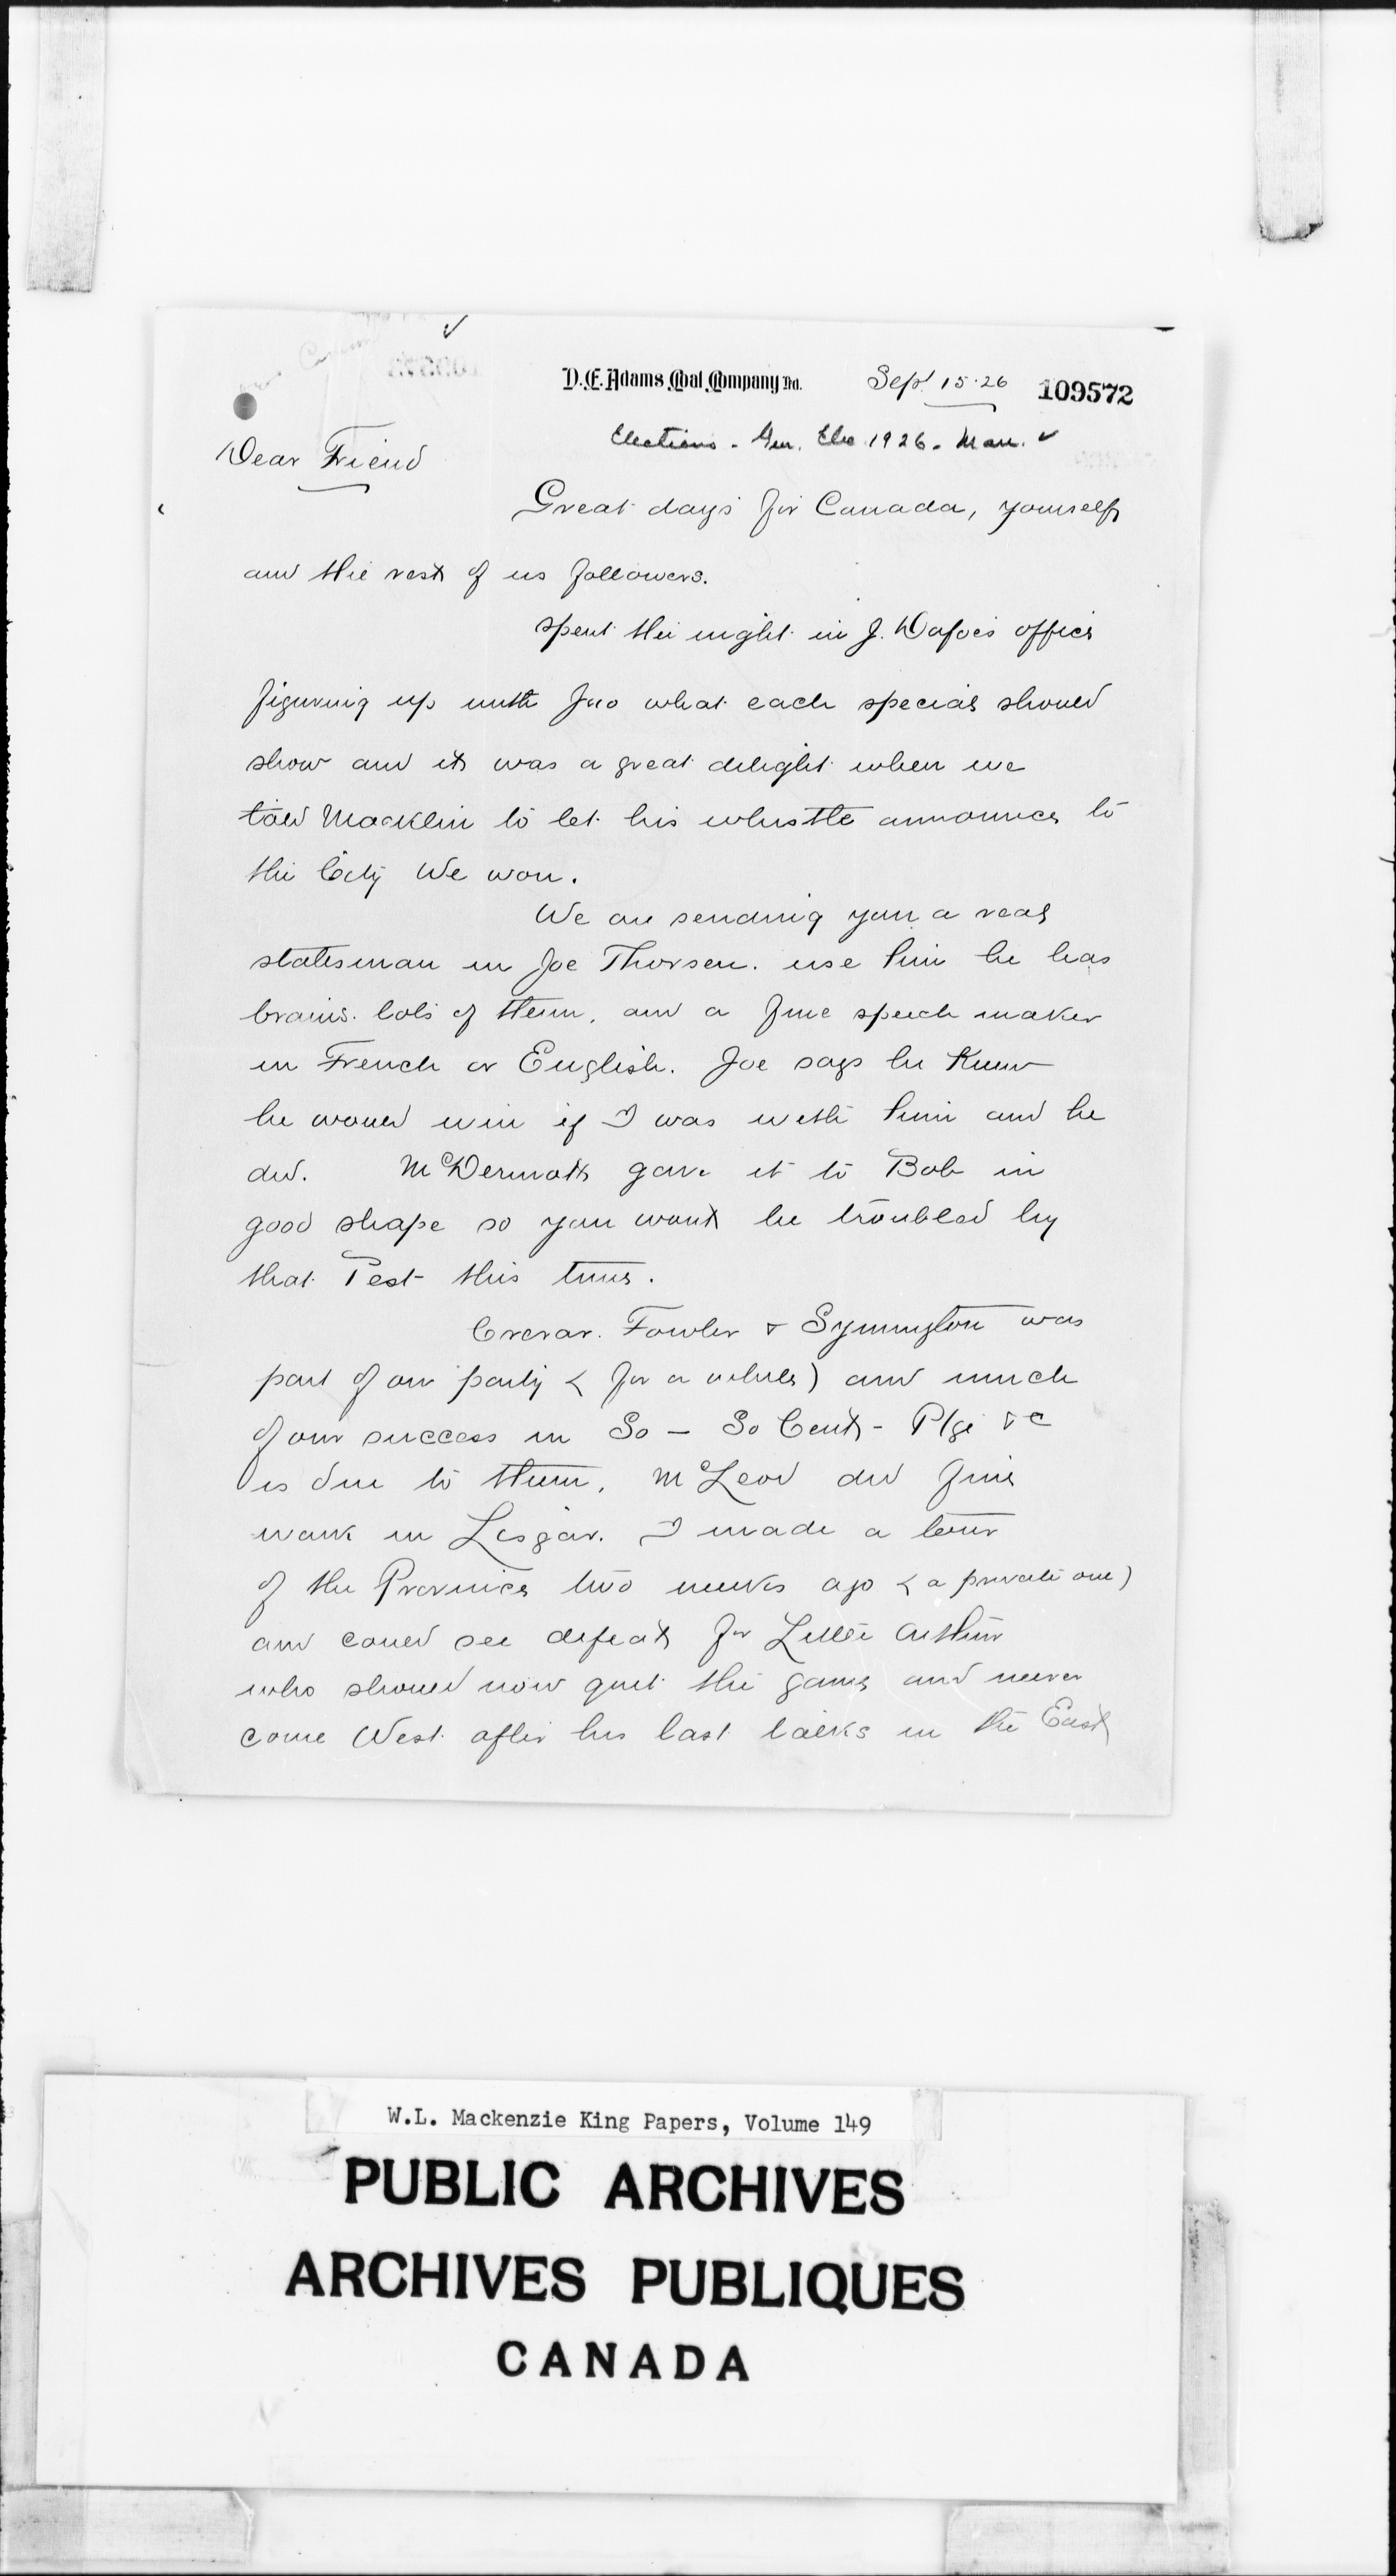 D.E. Adams Coal Company Ltd. Sept 15·26 109572
Elections - Gen. Elec 1926 - Man.
Dear Friend
Great days for Canada, yourself
and the rest of us followers.
spent the night in J. Dafoes office
figuring up with Jno what each special should
show and it was a great delight when we
told Macklin to let his whistle announce to
the City We won.
We are sending you a real
statesman in Joe Thorsen. use him he has
brains. lots of them, and a fine speech maker
in French or English. Joe says he knew
he would win if I was with him and he
did. McDermott gave it to Bob in
good shape so you wont be troubled by
that Pest this time.
Crerar. Fowler & Symington was
part of our party (for a while) and much
of our success in So - So Cent - P/ge &c
is due to them. McLeod did fine
work in Lisgar. I made a tour
of the Province two weeks ago (a private one)
and could see defeat for Little Arthur
who should now quit the game and never
come West after his last talks in the East
W.L. Mackenzie King Papers, Volume 149
PUBLIC ARCHIVES
ARCHIVES PUBLIQUES
CANADA